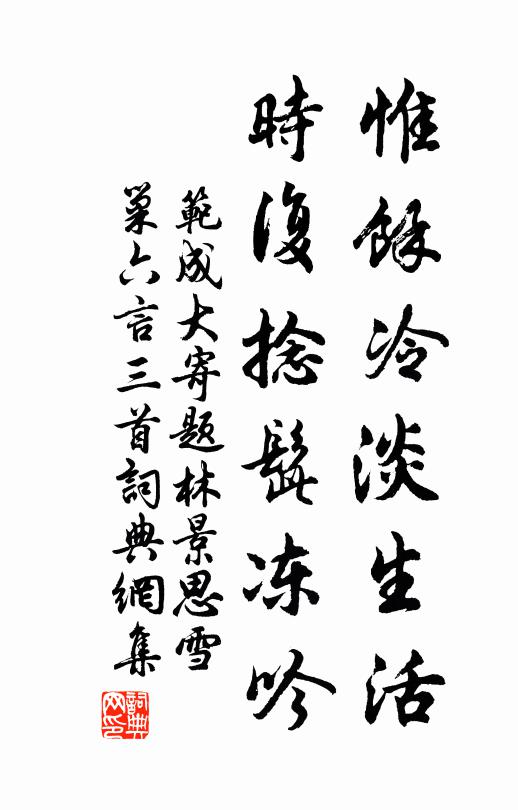 惟餘冷淡生活
時復捻髭冻吟
範成大寄題林景思雪
巢六言三首詞典網集
詞典网印